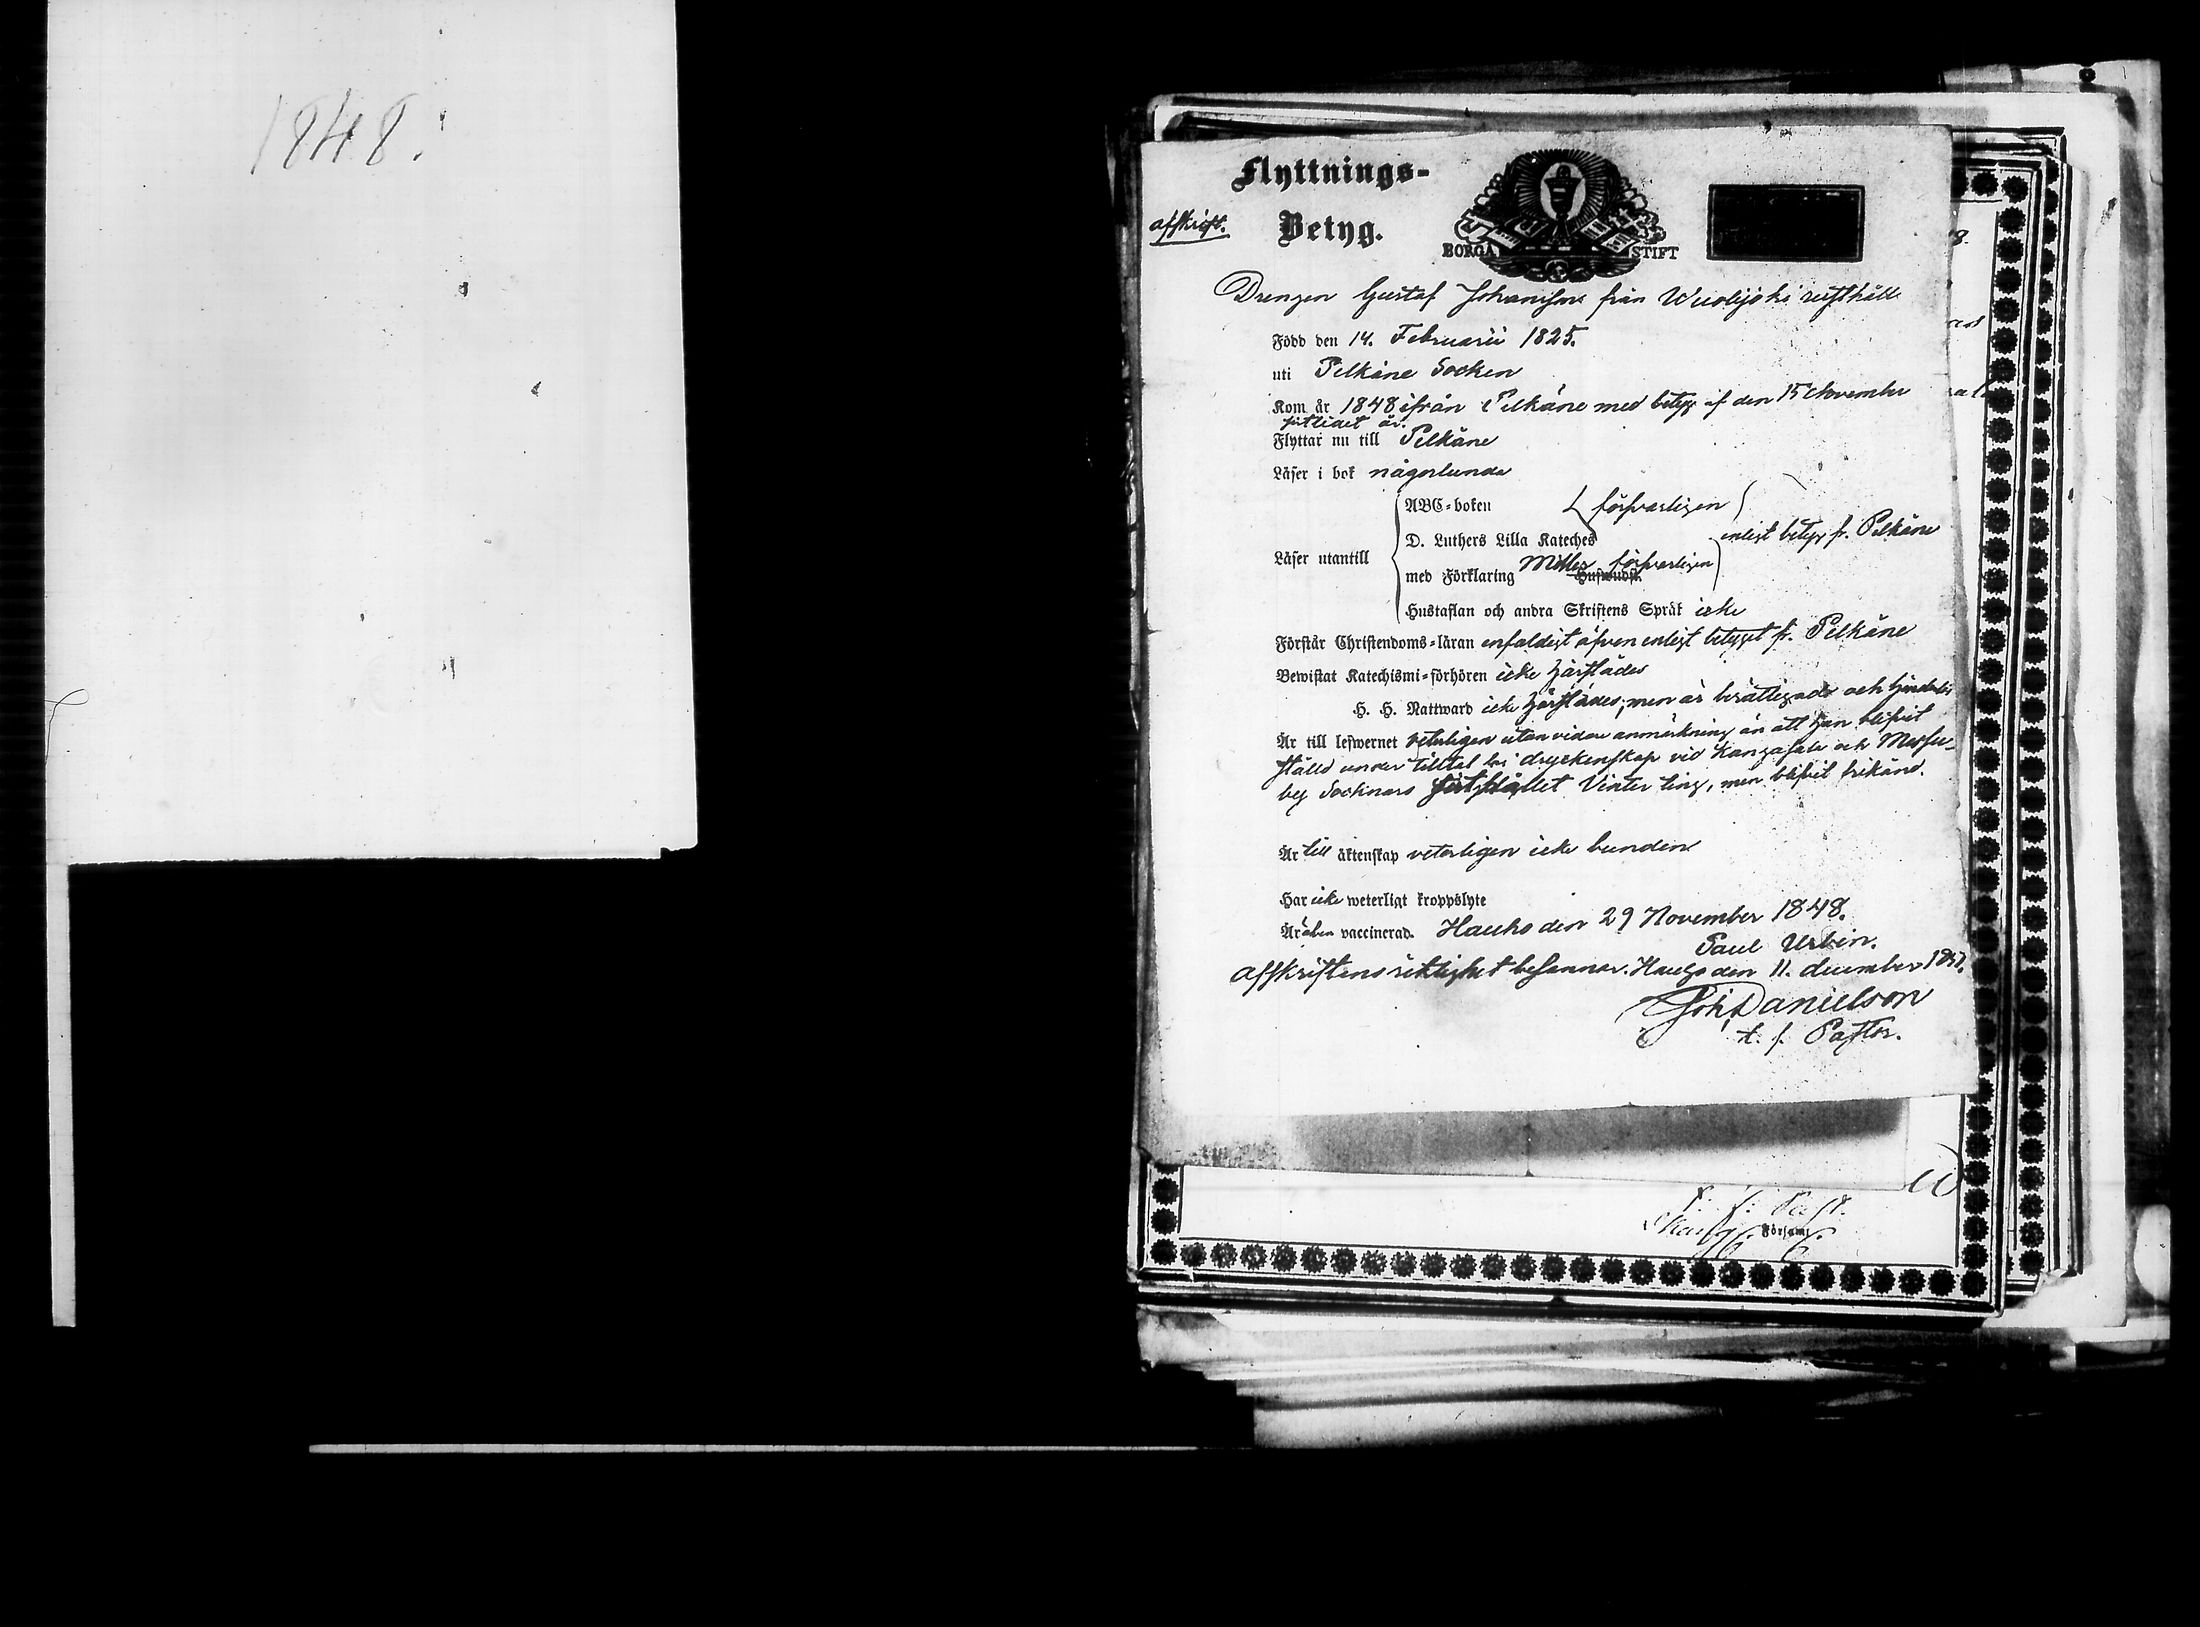 1848.
Flyttnings-
Betyg.
Afskrift.
BORGÅ STIFT
Drengen Gustaf Johansson från Wuolijoki rusthåll
Född den 14. Februarii 1825.
uti Pelkäne Socken
Kom år 1848 ifrån Pelkäne med betyg af den 15 November
sistledet år.
Flyttar nu till Pelkäne
Läser i bok någorlunda
Läser utantill
ABC-boken försvarligen
D. Luthers Lilla Kateches
enligt betyg fr. Pelkäne
med Förklaring Möllers försvarligen
Hustaflan och andra Skriftens Språk icke
Förstår Christendoms-läran enfaldigt äfven enligt betyget fr. Pelkäne
Bewistat Katechismi-förhören icke härstädes
H. H. Nattward icke härstädes, men är berättigade och
Är till lefwernet veterligen utan vidare anmärkning än att han blifvit
ställd under tilltal för dryckenskap vid Kangasala och Messu-
by Socknars Vinter ting, men blifvit frikänd.
Är till äktenskap veterligen icke bunden
Har icke weterligt kroppslyte
Är äfven vaccinerad. Hauho den 29 November 1848.
Paul Urbin.
Afskriftens riktighet besannar. Hauho den 11. december
Joh. Danielson
t. f. Pastor.
t. f. Past.
Församl.